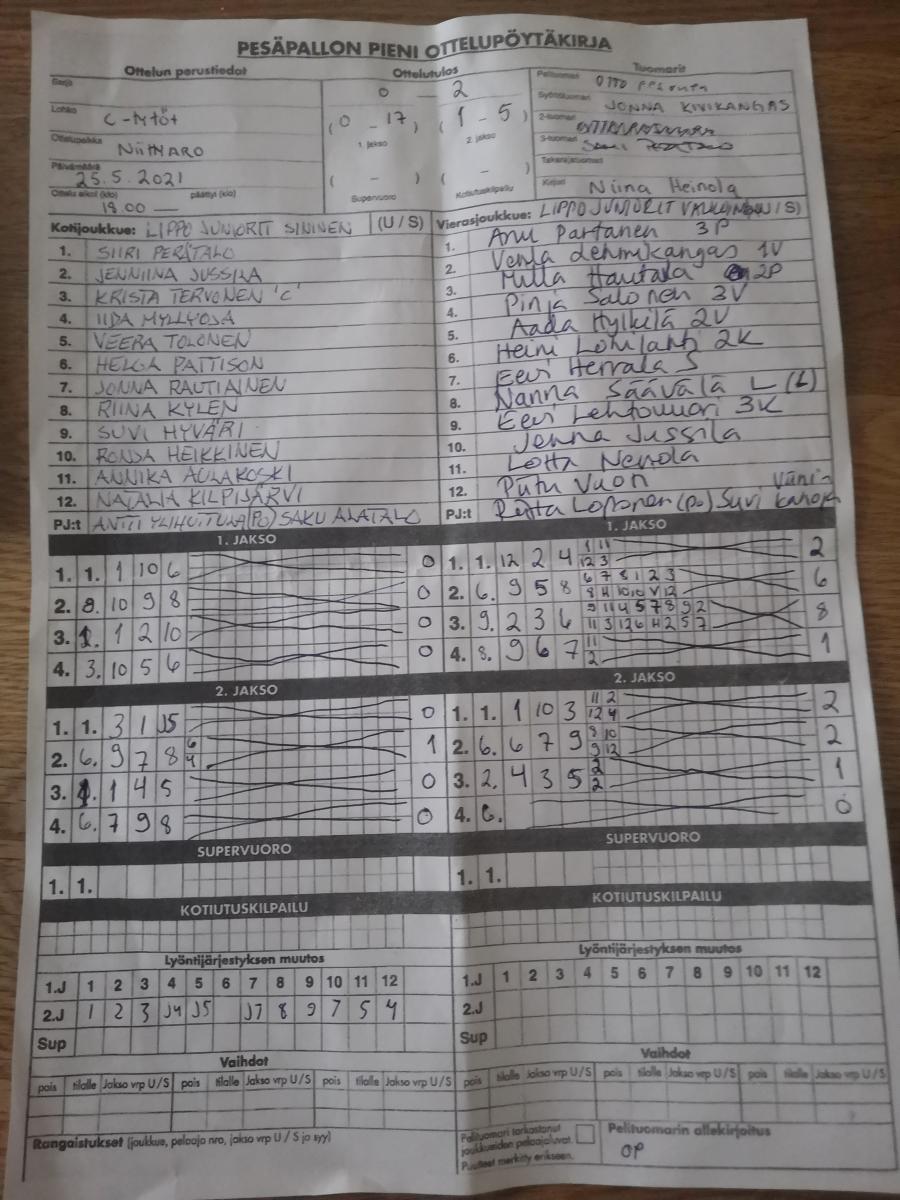 PESÄPALLON PIENI OTTELUPÖYTÄKIRJA
Ottelun perustiedot
Ottelutulos
Tuomarit
Sarja
0 – 2
Pelituomari OTTO
Lohko C-tytöt
(0 – 17) (1 – 5)
Syöttötuomari JONNA KIVIKANGAS
1. jakso 2. jakso
2-tuomari
Ottelupaikka NiittyARO
3-tuomari
Päivämäärä 25.5.2021
( – ) ( – )
Takarajatuomari
Ottelu alkoi (klo) päättyi (klo)
18.00 —
Supervuoro Kotiutuskilpailu
Kirjuri Niina Heinola
Kotijoukkue: LIPPO JUNIORIT SININEN (U / S)
Vierasjoukkue: LIPPO JUNIORIT VALKOINEN (U / S)
1. SIIRI PERÄTALO
2. JENNIINA JUSSILA
3. KRISTA TERVONEN 'C'
4. IIDA MYLLYOJA
5. VEERA TOLONEN
6. HELGA PATTISON
7. JONNA RAUTIAINEN
8. RIINA KYLEN
9. SUVI HYVÄRI
10. RONJA HEIKKINEN
11. ANNIKA AULAKOSKI
12. NATALIA KILPIJÄRVI
PJ:t ANTTI YLIHUTTULA (PO) SAKU ALATALO
1. Anu Partanen 3P
2. Venla Lehmikangas 1V
3. Milla Hautala 2P
4. Pinja Salonen 3V
5. Aada Hylkilä 2V
6. Heini Lohilahti 2K
7. Eevi Herrala S
8. Nanna Säävälä L (L)
9. Eevi Lehtovuori 3K
10. Jenna Jussila
11. Lotta Nenola
12. Piitu
PJ:t Loponen (po) Suvi
1. JAKSO
1. 1. 1 10 6 0
2. 8. 10 9 8 0
3. 1. 1 2 10 0
4. 3. 10 5 6 0
1. JAKSO
1. 1. 12 2 4 1 11 12 3 2
2. 6. 9 5 8 6 7 8 1 2 3 6
3. 9. 2 3 6 9 11 4 5 7 8 9 2 8
4. 8. 9 6 7 11 2 1
2. JAKSO
1. 1. 3 1 J5 0
2. 6. 9 7 8 6 4 1
3. 1. 1 4 5 0
4. 6. 7 9 8 0
2. JAKSO
1. 1. 1 10 3 11 2 12 4 2
2. 6. 6 7 9 8 10 9 12 2
3. 2. 4 3 5 2 2 1
4. 6. 0
SUPERVUORO
1. 1.
SUPERVUORO
1. 1.
KOTIUTUSKILPAILU
KOTIUTUSKILPAILU
Lyöntijärjestyksen muutos
1.J 1 2 3 4 5 6 7 8 9 10 11 12
2.J 1 2 3 J4 J5 J7 8 9 7 5 4
Sup
Lyöntijärjestyksen muutos
1.J 1 2 3 4 5 6 7 8 9 10 11 12
2.J
Sup
Vaihdot
pois tilalle Jakso vrp U/S pois tilalle Jakso vrp U/S pois tilalle Jakso vrp U/S
Vaihdot
pois tilalle Jakso vrp U/S pois tilalle Jakso vrp U/S pois tilalle Jakso vrp U/S
Rangaistukset (joukkue, pelaaja nro, jakso vrp U / S ja syy)
Pelituomari tarkastanut
joukkueiden pelaajaluvat.
Puutteet merkitty erikseen.
Pelituomarin allekirjoitus
OP